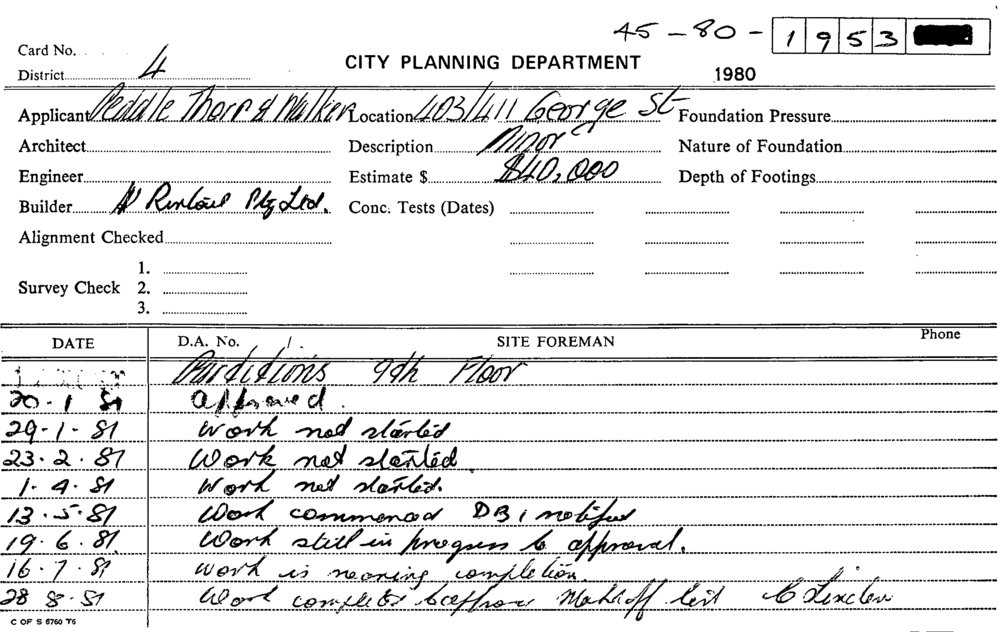 45-80-1953
Card No.
District 4
CITY PLANNING DEPARTMENT
1980
Applicant Peddle Thorp & Walker Location 403/411 George St Foundation Pressure
Architect Description Minor Nature of Foundation
Engineer Estimate $ $40,000 Depth of Footings
Builder Pty Ltd. Conc. Tests (Dates)
Alignment Checked
1.
Survey Check 2.
3.
DATE D.A. No. SITE FOREMAN Phone
Partitions 9th Floor
20-1 81 approved.
29-1-81 Work not started
23.2.81 Work not started
1-4.81 Work not started.
13.5.81 Work commenced DBI notified
19.6.81. Work still in progress to approval.
16-7.81 Work is nearing completion.
28 8-81 Work completed to approval list
C OF S 6760 T6